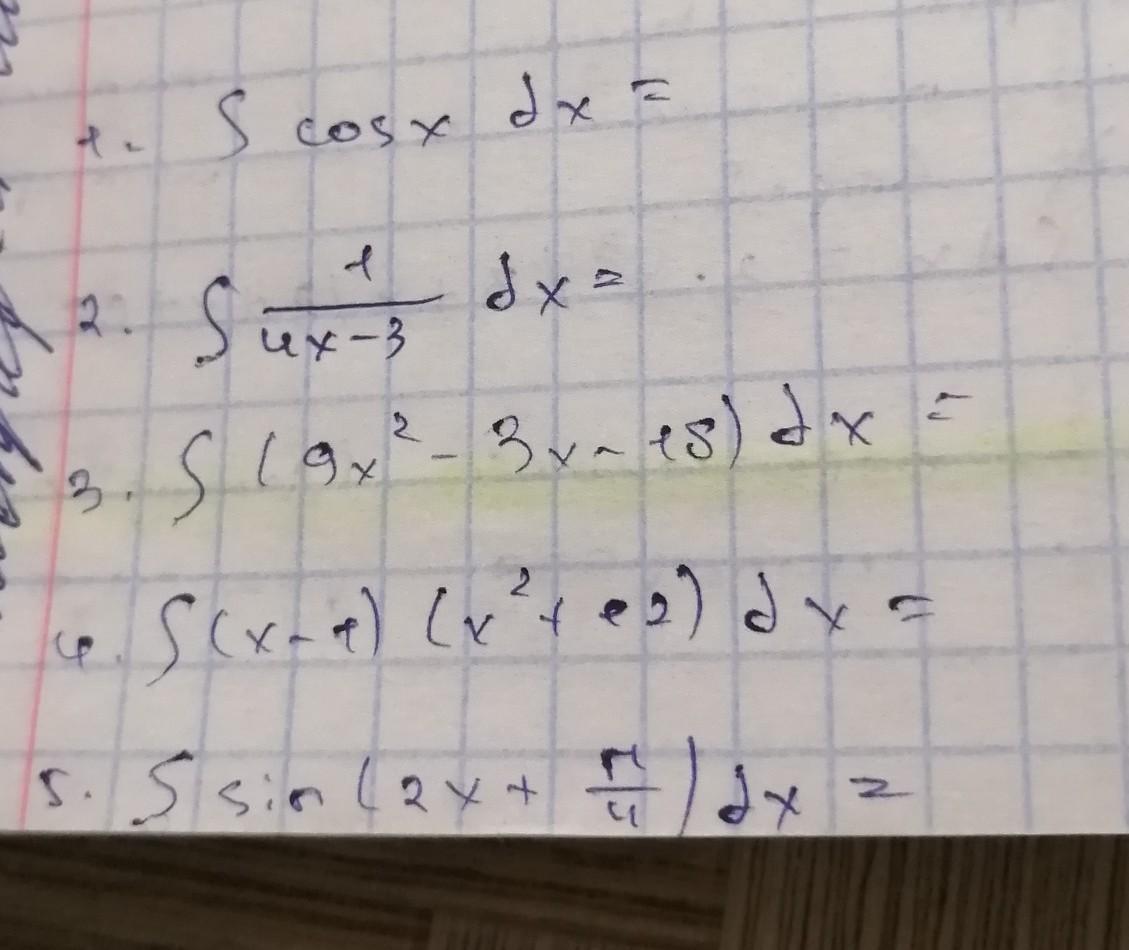 1. ∫ cos x dx =
2. ∫ 1/(4x-3) dx =
3. ∫ (9x² - 3x - 18) dx =
4. ∫(x-1) (x² + 2) dx =
5. ∫ sin (2x + π/4) dx =